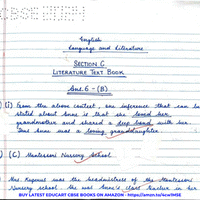 CBSE
English
Language and Literature
SECTION C
LITERATURE TEXT BOOK
Ans. 6 - (B)
(i) From the above context, one inference that can be
stated about Anne is that she loved her
grandmother and shared a deep bond with her.
Thus Anne was a loving granddaughter.
(C) Montessori Nursery School.
Mrs. Kuperus was the headmistress of the Montessori
Nursery school. She was Anne's Class teacher in her
BUY LATEST EDUCART CBSE BOOKS ON AMAZON - https://amzn.to/4cwIMSE